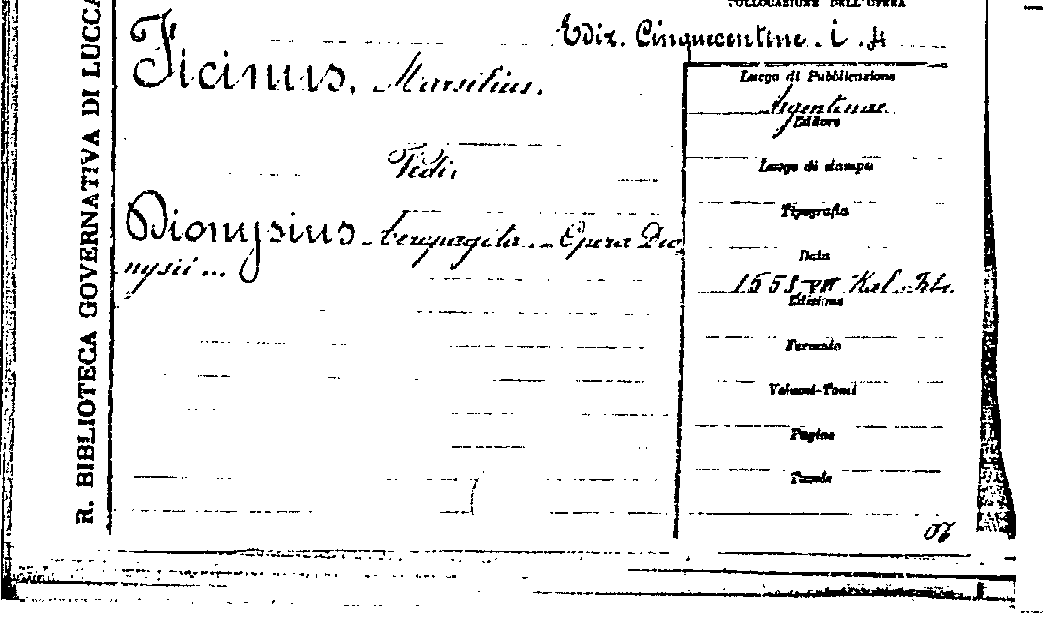 R. BIBLIOTECA GOVERNATIVA DI LUCCA
COLLOCAZIONE DELL'OPERA
Ediz. Cinquecentine. i. 4
Ficinus, Marsilius.
Luogo di Pubblicazione
Argentinae
Editore
Vedi:
Luogo di stampa
Tipografia
Dionysius Areopagita... Opera Dio
nysii...
Data
Kal. Feb.
Edizione
Formato
Volumi-Tomi
Pagine
Tavole